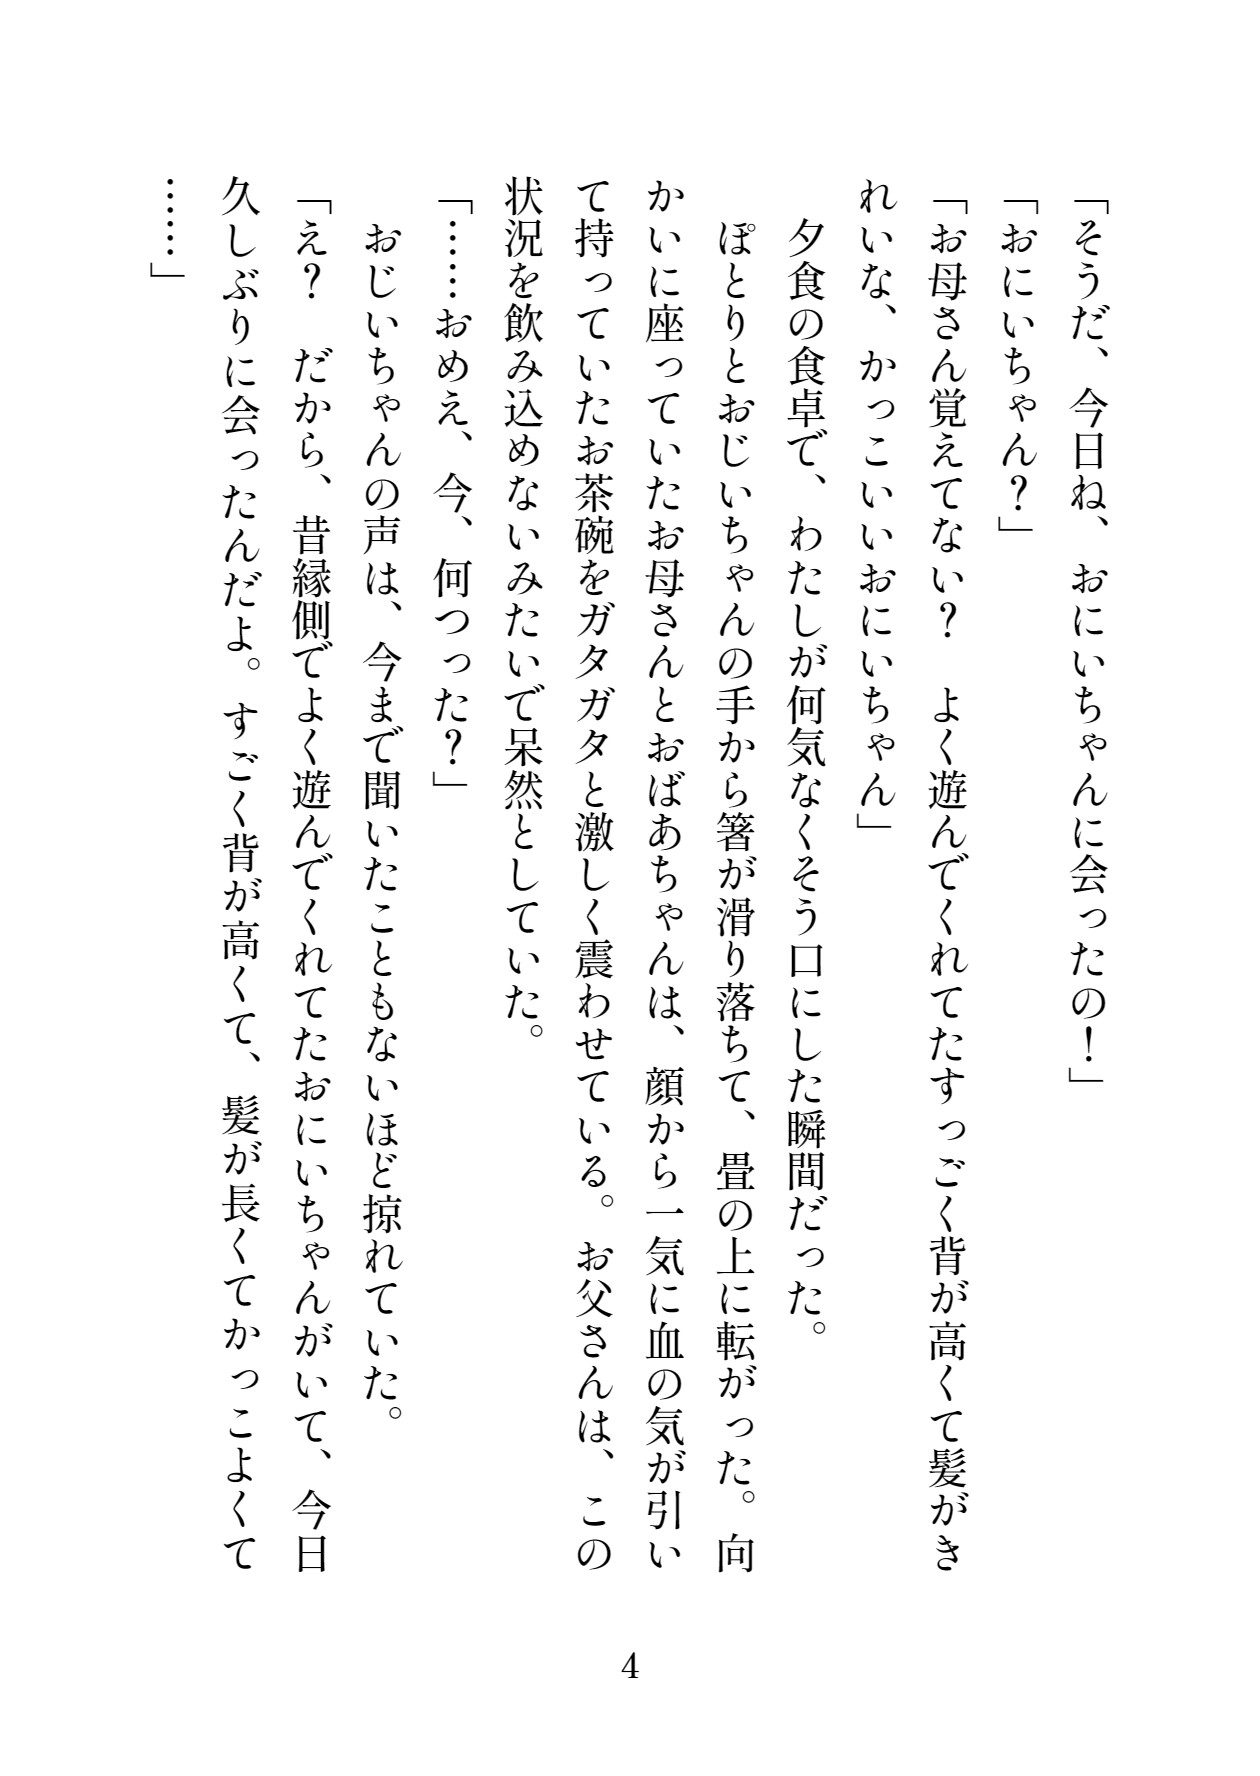 「そうだ、今日ね、おにいちゃんに会ったの！」
「おにいちゃん？」
「お母さん覚えてない？　よく遊んでくれてたすっごく背が高くて髪がき
れいな、かっこいいおにいちゃん」
　夕食の食卓で、わたしが何気なくそう口にした瞬間だった。
　ぽとりとおじいちゃんの手から箸が滑り落ちて、畳の上に転がった。向
かいに座っていたお母さんとおばあちゃんは、顔から一気に血の気が引い
て持っていたお茶碗をガタガタと激しく震わせている。お父さんは、この
状況を飲み込めないみたいで呆然としていた。
「……おめえ、今、何つった？」
　おじいちゃんの声は、今まで聞いたこともないほど掠れていた。
「え？　だから、昔縁側でよく遊んでくれてたおにいちゃんがいて、今日
久しぶりに会ったんだよ。すごく背が高くて、髪が長くてかっこよくて
……」
4